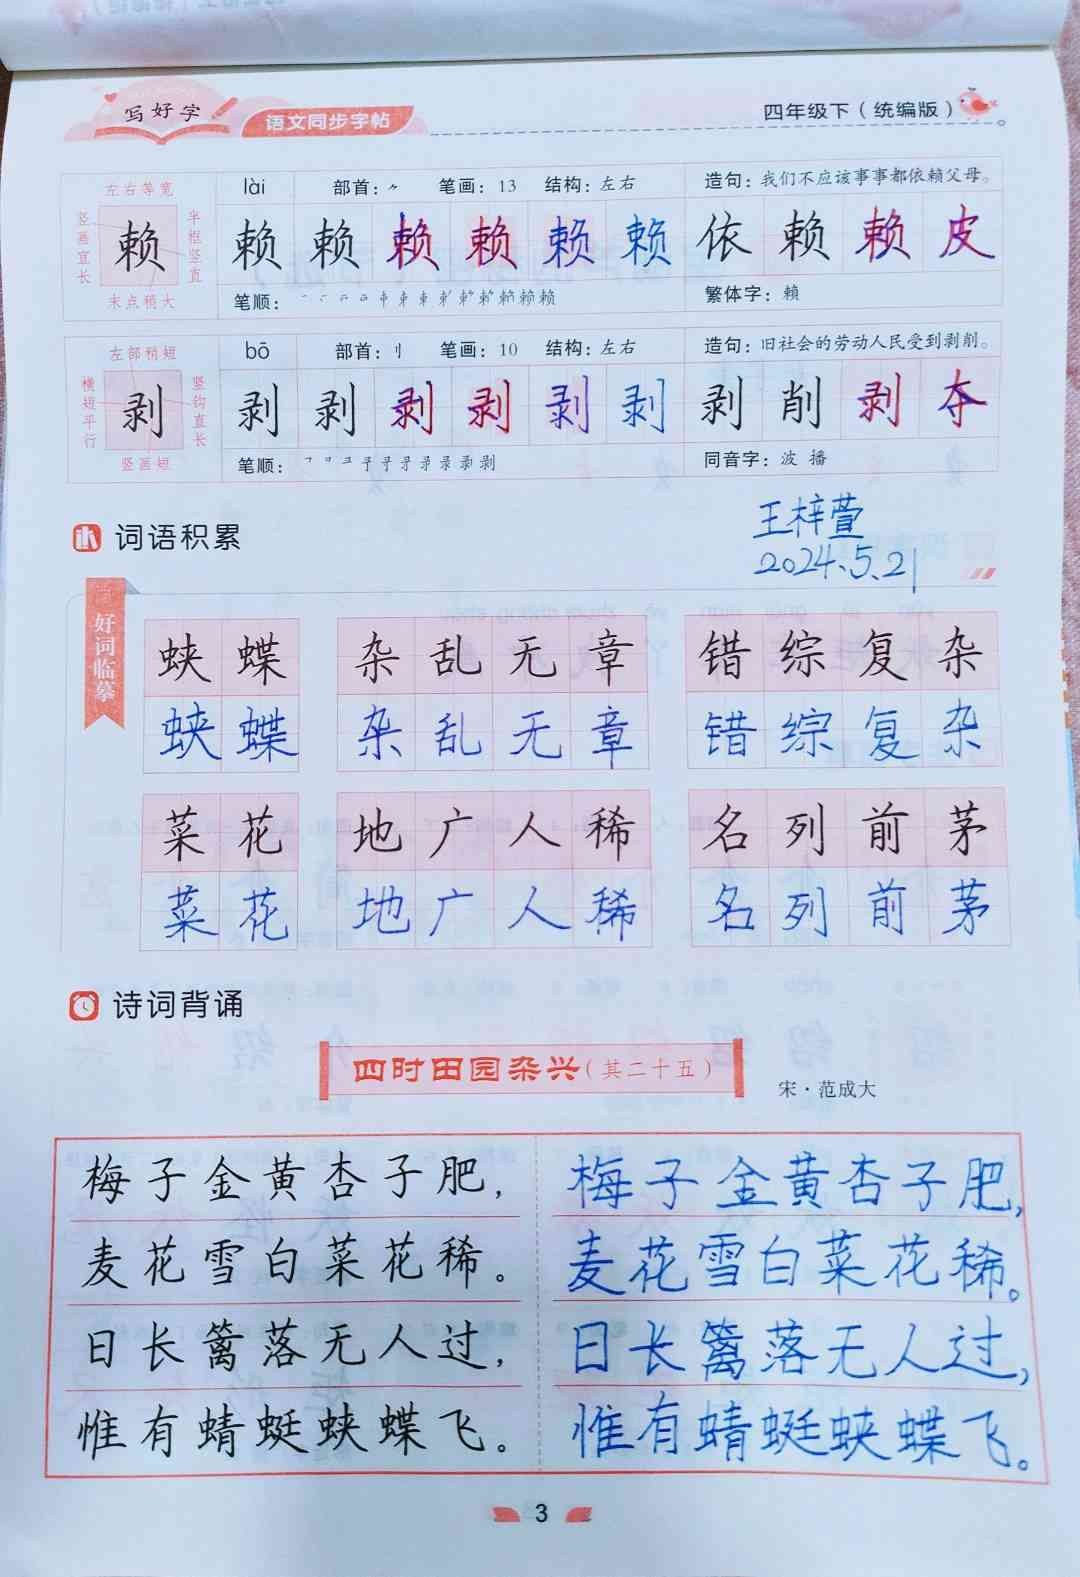 写好字
语文同步字帖
四年级下（统编版）
左右等宽
竖画宜长
半框竖直
末点稍大
赖
lài 部首：⺈ 笔画：13 结构：左右 造句：我们不应该事事都依赖父母。
赖 赖 赖 赖 赖 赖 依 赖 赖 皮
笔顺：
繁体字：賴
左部稍短
横短平行
竖钩直长
竖画短
剥
bō 部首：刂 笔画：10 结构：左右 造句：旧社会的劳动人民受到剥削。
剥 剥 剥 剥 剥 剥 剥 削 剥 夺
笔顺：
同音字：波 播
词语积累
王梓萱
2024.5.21
好词临摹
蛱蝶 杂乱无章 错综复杂
蛱蝶 杂乱无章 错综复杂
菜花 地广人稀 名列前茅
菜花 地广人稀 名列前茅
诗词背诵
四时田园杂兴（其二十五）
宋·范成大
梅子金黄杏子肥， 梅子金黄杏子肥，
麦花雪白菜花稀。 麦花雪白菜花稀。
日长篱落无人过， 日长篱落无人过，
惟有蜻蜓蛱蝶飞。 惟有蜻蜓蛱蝶飞。
3